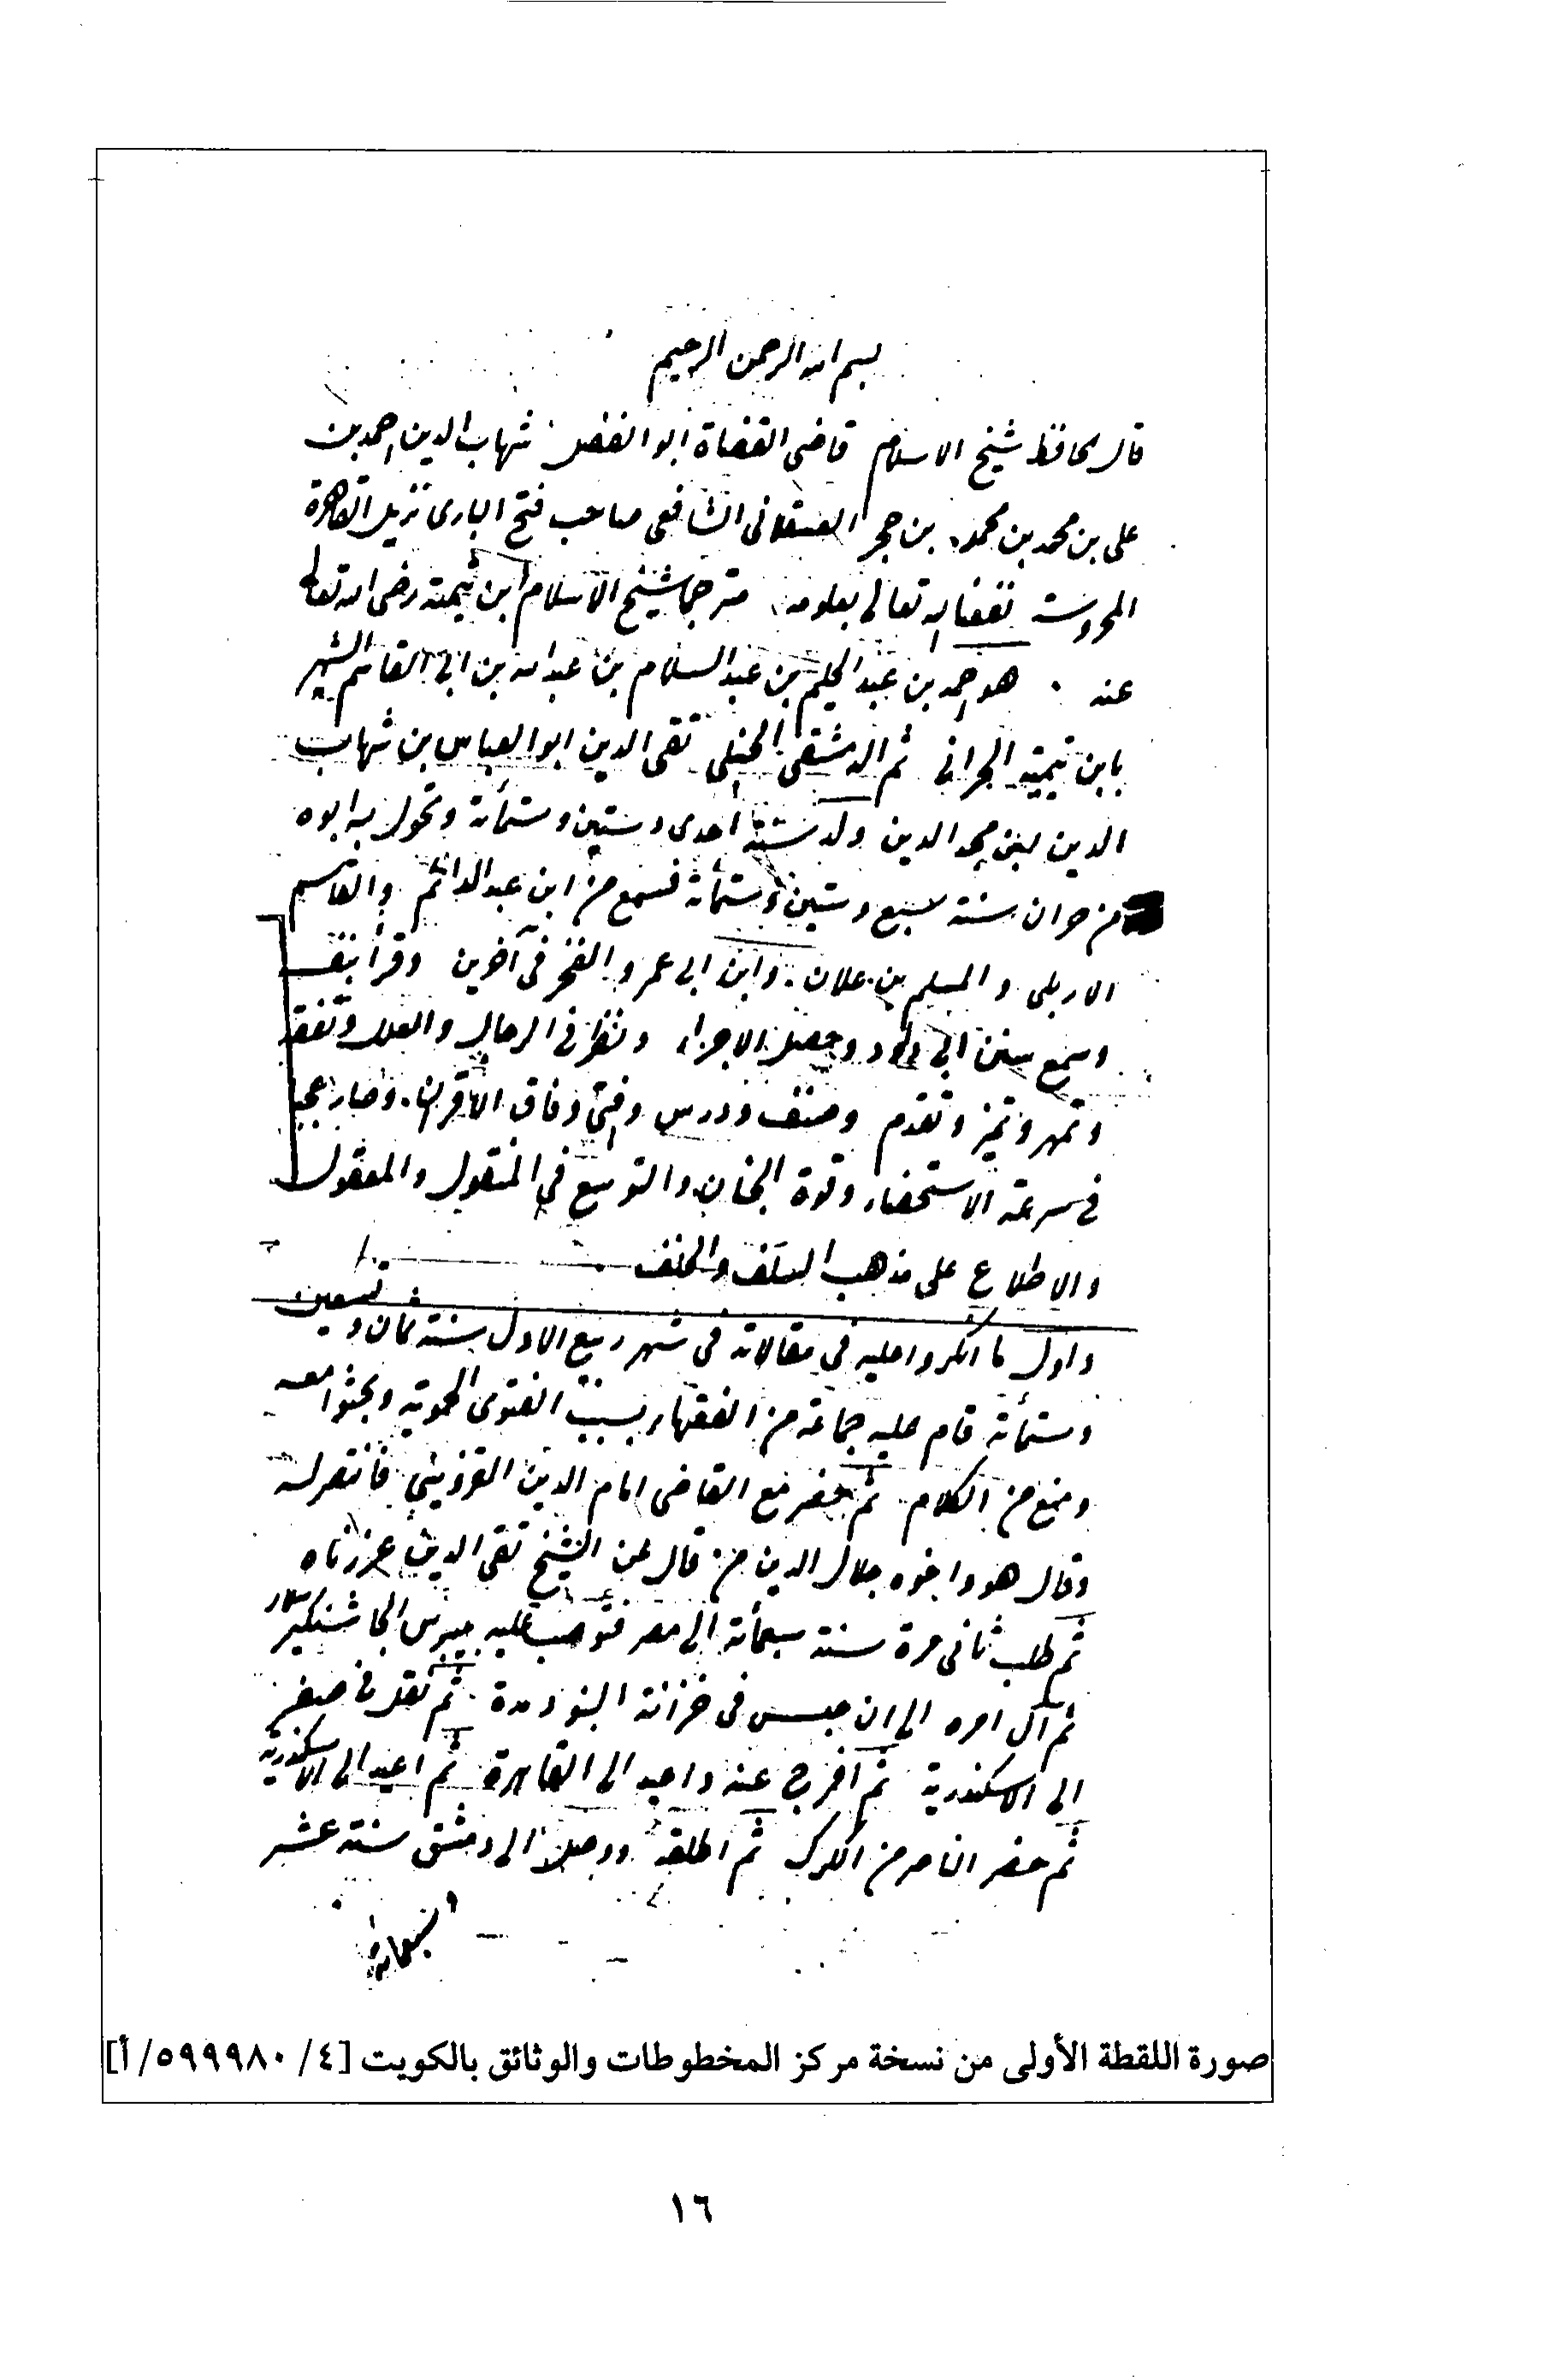 بسم الله الرحمن الرحيم
قال الحافظ شيخ الاسلام قاضى القضاة ابو الفضل شهاب الدين احمد بن
على بن محمد بن محمد بن حجر العسقلانى الشافعى صاحب فتح البارى نزيل القاهرة
المحروسة نفعنا الله تعالى بعلومه مترجما شيخ الاسلام ابن تيمية رضى الله تعالى
عنه . هو احمد بن عبد الحليم بن عبد السلام بن عبد الله بن ابى القاسم الشهير
بابن تيمية الحرانى ثم الدمشقى الحنبلى تقى الدين ابو العباس بن شهاب
الدين بن مجد الدين ولد سنة احدى وستين وستمائة وتحول به ابوه
من حران سنة سبع وستين وستمائة فسمع من ابن عبد الدائم والقاسم
الاربلى والمسلم بن علان وابن ابى عمر والفخر فى آخرين وقرأ بنفسه
وسمع سنن ابى داود وحصل الاجزاء ونظر فى الرجال والعلل وتفقه
وتمهر وتميز وتقدم وصنف ودرس وافتى وفاق الأقران وصار عجبا
فى سرعة الاستحضار وقوة الجنان والتوسع فى المنقول والمعقول
والاطلاع على مذهب السلف والخلف
واول ما انكروا عليه فى مقالاته فى شهر ربيع الاول سنة ثمان وتسعين
وستمائة قام عليه جماعة من الفقهاء بسبب الفتوى الحموية وبحثوا معه
ومنع من الكلام ثم حضر مع القاضى امام الدين القزوينى فانتصر له
وقال هو واخوه جلال الدين من قال عن الشيخ تقى الدين عزرناه
ثم طلب ثانى مرة سنة سبعمائة الى مصر فتعصب عليه بيبرس الجاشنكير سلار
ثم آل امره الى ان حبس فى خزانة البنود مدة ثم نقل فى صفر
الى الاسكندرية ثم افرج عنه واعيد الى القاهرة ثم اعيد الى الاسكندرية
ثم حضر الناصر من الكرك ثم اطلقه ووصل الى دمشق سنة عشر
وسبعمائة
صورة اللقطة الأولى من نسخة مركز المخطوطات والوثائق بالكويت [٤/ ٥٩٩٩٨٠/ أ]
١٦